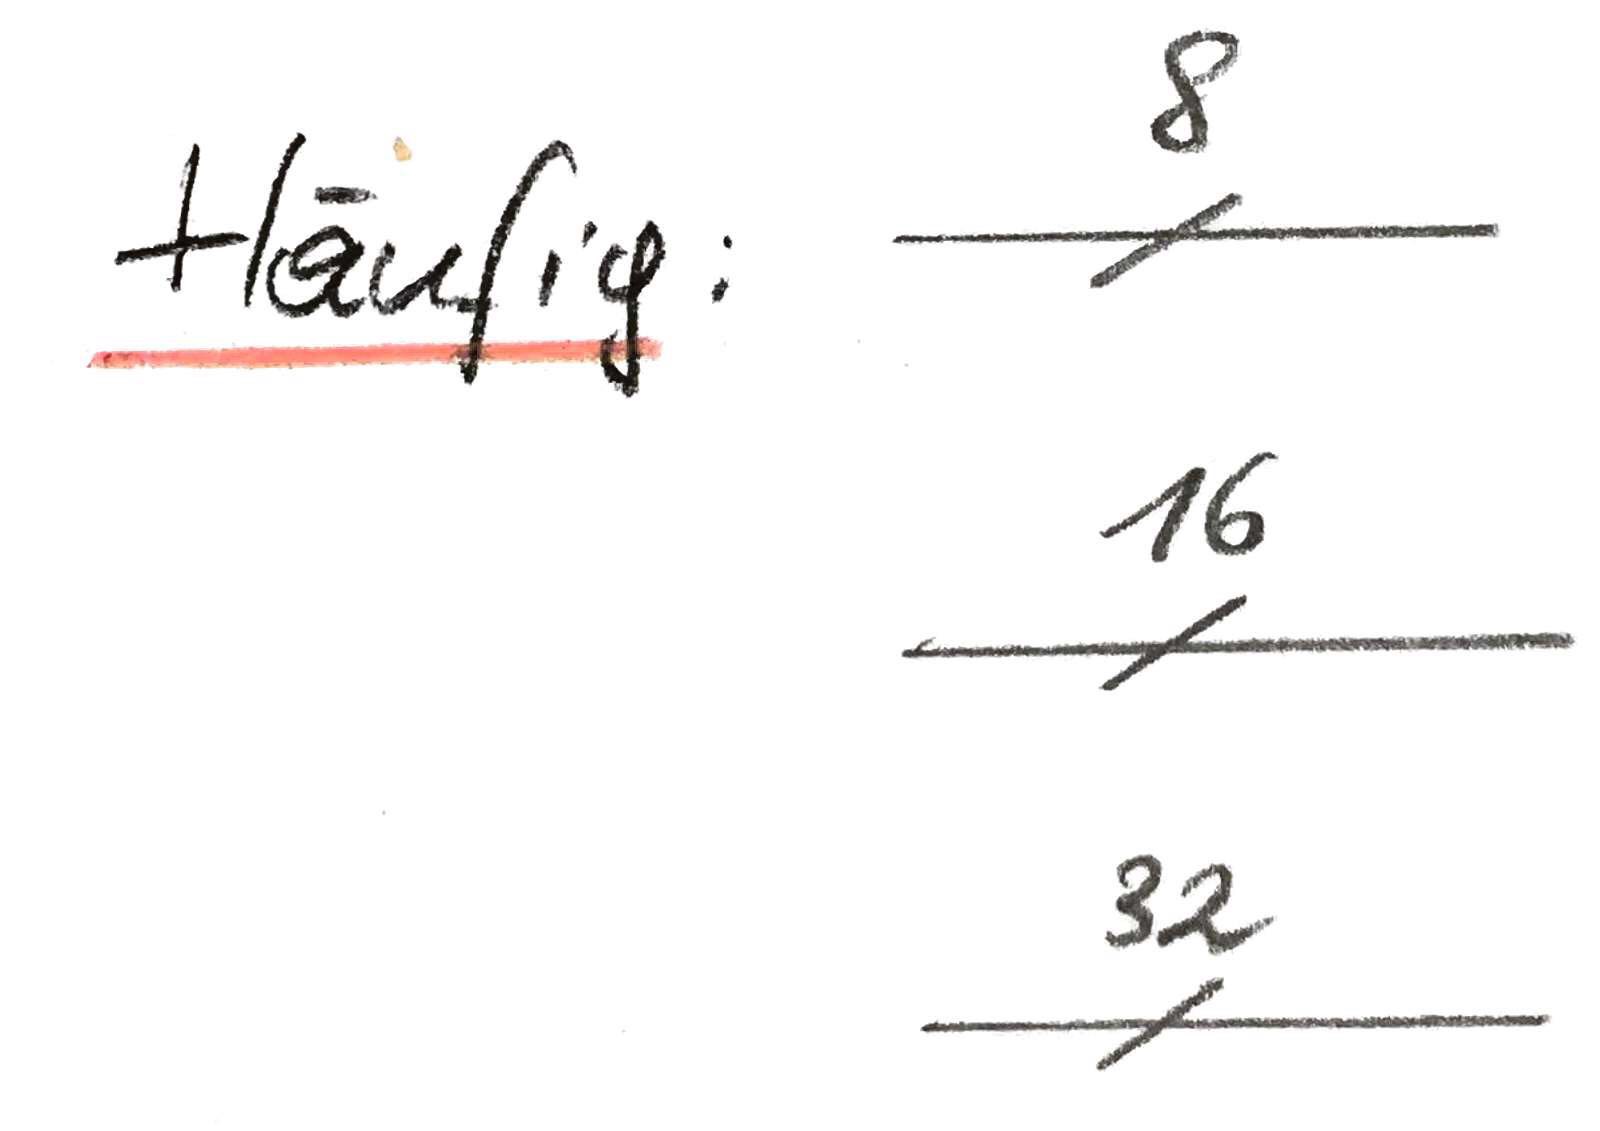 8
Häufig:
16
32